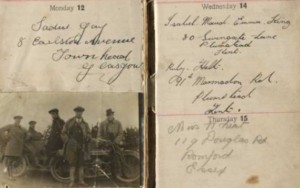 Monday 12
Sadie Gay
8 Earlston Avenue
Townhead
Glasgow
Wednesday 14
Isabel Maud Emma King
30 Swingate Lane
Plumstead
Kent.
Ruby Hall.
91 Road
Plumstead
Kent.
Thursday 15
Miss
119 Douglas Rd
Romford
Essex